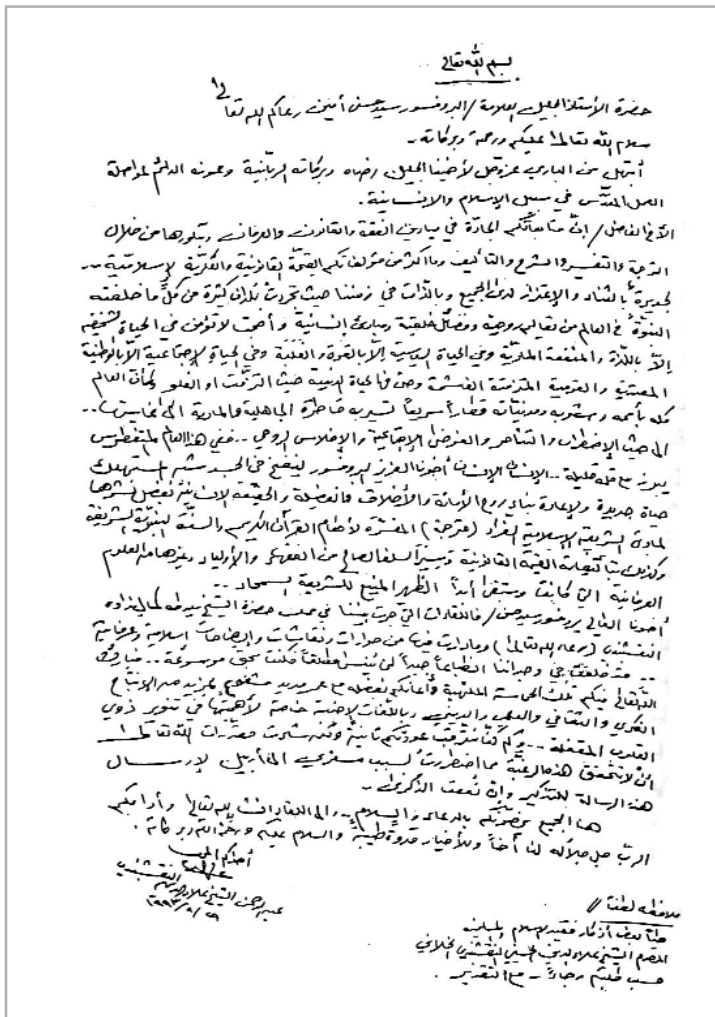 بسم الله تعالى
حضرة الأستاذ الجليل العلامة / البروفسور سيد حسن أمين رعاكم الله تعالى
سلام الله تعالى عليكم ورحمة وبركاته ..
أبتهل من الباري عز وجل لأخينا الجليل رضاه وبركاته الربانية وعونه الدائم لمواصلة
العمل المقدّس في سبيل الإسلام والإنسانية .
الأخ الفاضل / إنّ متابعاتكم الجادّة في ميادين الفقه والقانون والعرفان وبلورها من خلال
الترجمة والتفسير والشرح والتأليف وما أكثر من مؤلفاتكم القيّمة القانونية والفكريّة الإسلاميّة ..
لجديرة بالثناء والإعتزاز لدى الجميع وبالذات في زمننا حيث تجردت بلدان كثيرة من كلّ ما خلفته
النبوة في العالم من تعاليم روحية وفضائل خلقية ومبادئ إنسانية وأصبحت لا تؤمن في الحياة الشخصية
إلّا باللذة والمنفعة الماديّة وفي الحياة السياسية إلّا بالقوة والغلبة وفي الحياة الإجتماعية إلّا بالوطنية
المعتدية والقومية المتزمتة الغشمة وحتى في الحياة الدينية حيث التزمّت او الغلو وكأن العالم
كله بأممه وشعوبه ومدنيّاته قطاراً سريعاً تسير به قاطرة الجاهلية والمادية الى غايتها ..
الى حيث الإضطراب والتناحر والفوضى الإجتماعية والإفلاس الروحي .. ففي هذا العالم المتغطرس
يبرز مع قلة قليلة .. الإنسان الإنسان أخونا العزيز البروفسور لينفخ في الجسد شبه المستهلك
حياة جديدة ولإعادة بناء روح الأمانة والأخلاق والفضيلة والحقيقة الإنسانية بفضل نشرها
لمبادئ الشريعة الإسلامية الغرّاء (مترجمة) المفسّرة لأحكام القرآن الكريم والسنّة النبويّة الشريفة
وكذلك بتآليفاته القيمة القانونية وسير السلف الصالح من الفقهاء والأولياء وغيرها من العلوم
العرفانية التي كانت وستبقى أبداً الظهر المنيع للشريعة السمحاء ..
أخونا الغالي بروفسور سيد حسن / فاللقاءات التي جرت بيننا في مجلس حضرة الشيخ
النقشبندي (رعاه الله تعالى) وما دارت فيها من حوارات ونقاشات وإيضاحات إسلامية وعرفانية
.. قد خلّفت في وجداننا انطباعاً جيداً لن يُنسى مطلقاً فكنت بحق موسوعة .. فبارك
الله تعالى فيكم تلك الحماسة الملتهبة وأعانكم بفضله مع عمر مديد مشفوع بمزيد من الإنتاج
الفكري والثقافي والعلمي والديني وباللغات الأجنبية خاصة لأهميتها في تنوير ذوي
القلوب المقفلة .. وكم كنّا نترقب عودتكم ثانيةً ولكن شاءت مقدّرات الله تعالى
أن لا تتحقق هذه الرغبة مما اضطررت بسبب سفري الى أربيل لإرسال
هذه الرسالة للتذكير وإن نفعت الذكرى ..
هنا الجميع يخصّونكم بالدعاء والسلام .. والى اللقاء إنشاء الله تعالى وأدامكم
الربّ جل جلاله لنا أخاً وللأخيار قدوة طيبة والسلام عليكم ورحمة الله وبركاته .
أخوكم المحب
عبدالرحمن الشيخ علاء الدين النقشبندي
١٩٩٣/٩/٢٩
ملاحظة لطفاً //
طيّاً بعض أذكار فقيد الإسلام والمسلمين
المرحوم الشيخ علاء الدين الحسيني النقشبندي
حسب طلبكم رجاءً .. مع التقدير .